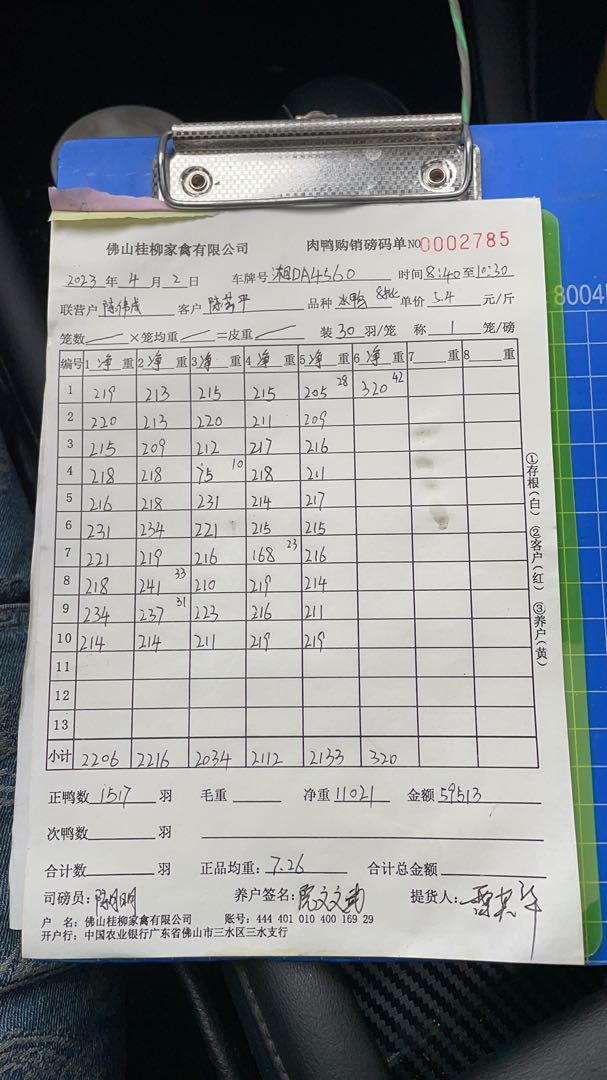 佛山桂柳家禽有限公司 肉鸭购销磅码单 NO 0002785
2023 年 4 月 2 日 车牌号 湘DA4560 时间 8:40 至 10:30
联营户 陈伟成 客户 陈芳平 品种 水鸭 单价 5.4 元/斤
笼数 ×笼均重 =皮重 装 30 羽/笼 称 1 笼/磅
编号 1 净 重 2 净 重 3 净 重 4 净 重 5 净 重 6 净 重 7 重 8 重
1 219 213 215 215 205 28 320 42
2 220 213 220 211 209
3 215 209 212 217 216
4 218 218 75 10 218 211
5 216 218 231 214 217
6 231 234 221 215 215
7 221 219 216 168 23 216
8 218 241 33 210 219 214
9 234 237 31 223 216 211
10 214 214 211 219 219
11
12
13
小计 2206 2216 2034 2112 2133 320
正鸭数 1517 羽 毛重 净重 11021 金额 59513
次鸭数 羽
合计数 羽 正品均重: 7.26 合计总金额
司磅员: 养户签名: 提货人:
户 名: 佛山桂柳家禽有限公司 账号: 444 401 010 400 169 29
开户行: 中国农业银行广东省佛山市三水区三水支行
①存根(白) ②客户(红) ③养户(黄)
8004